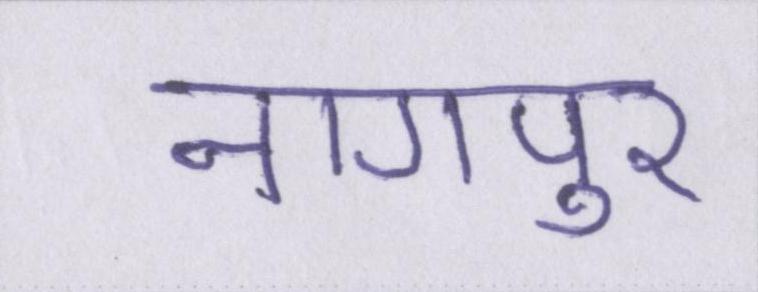 नागपुर